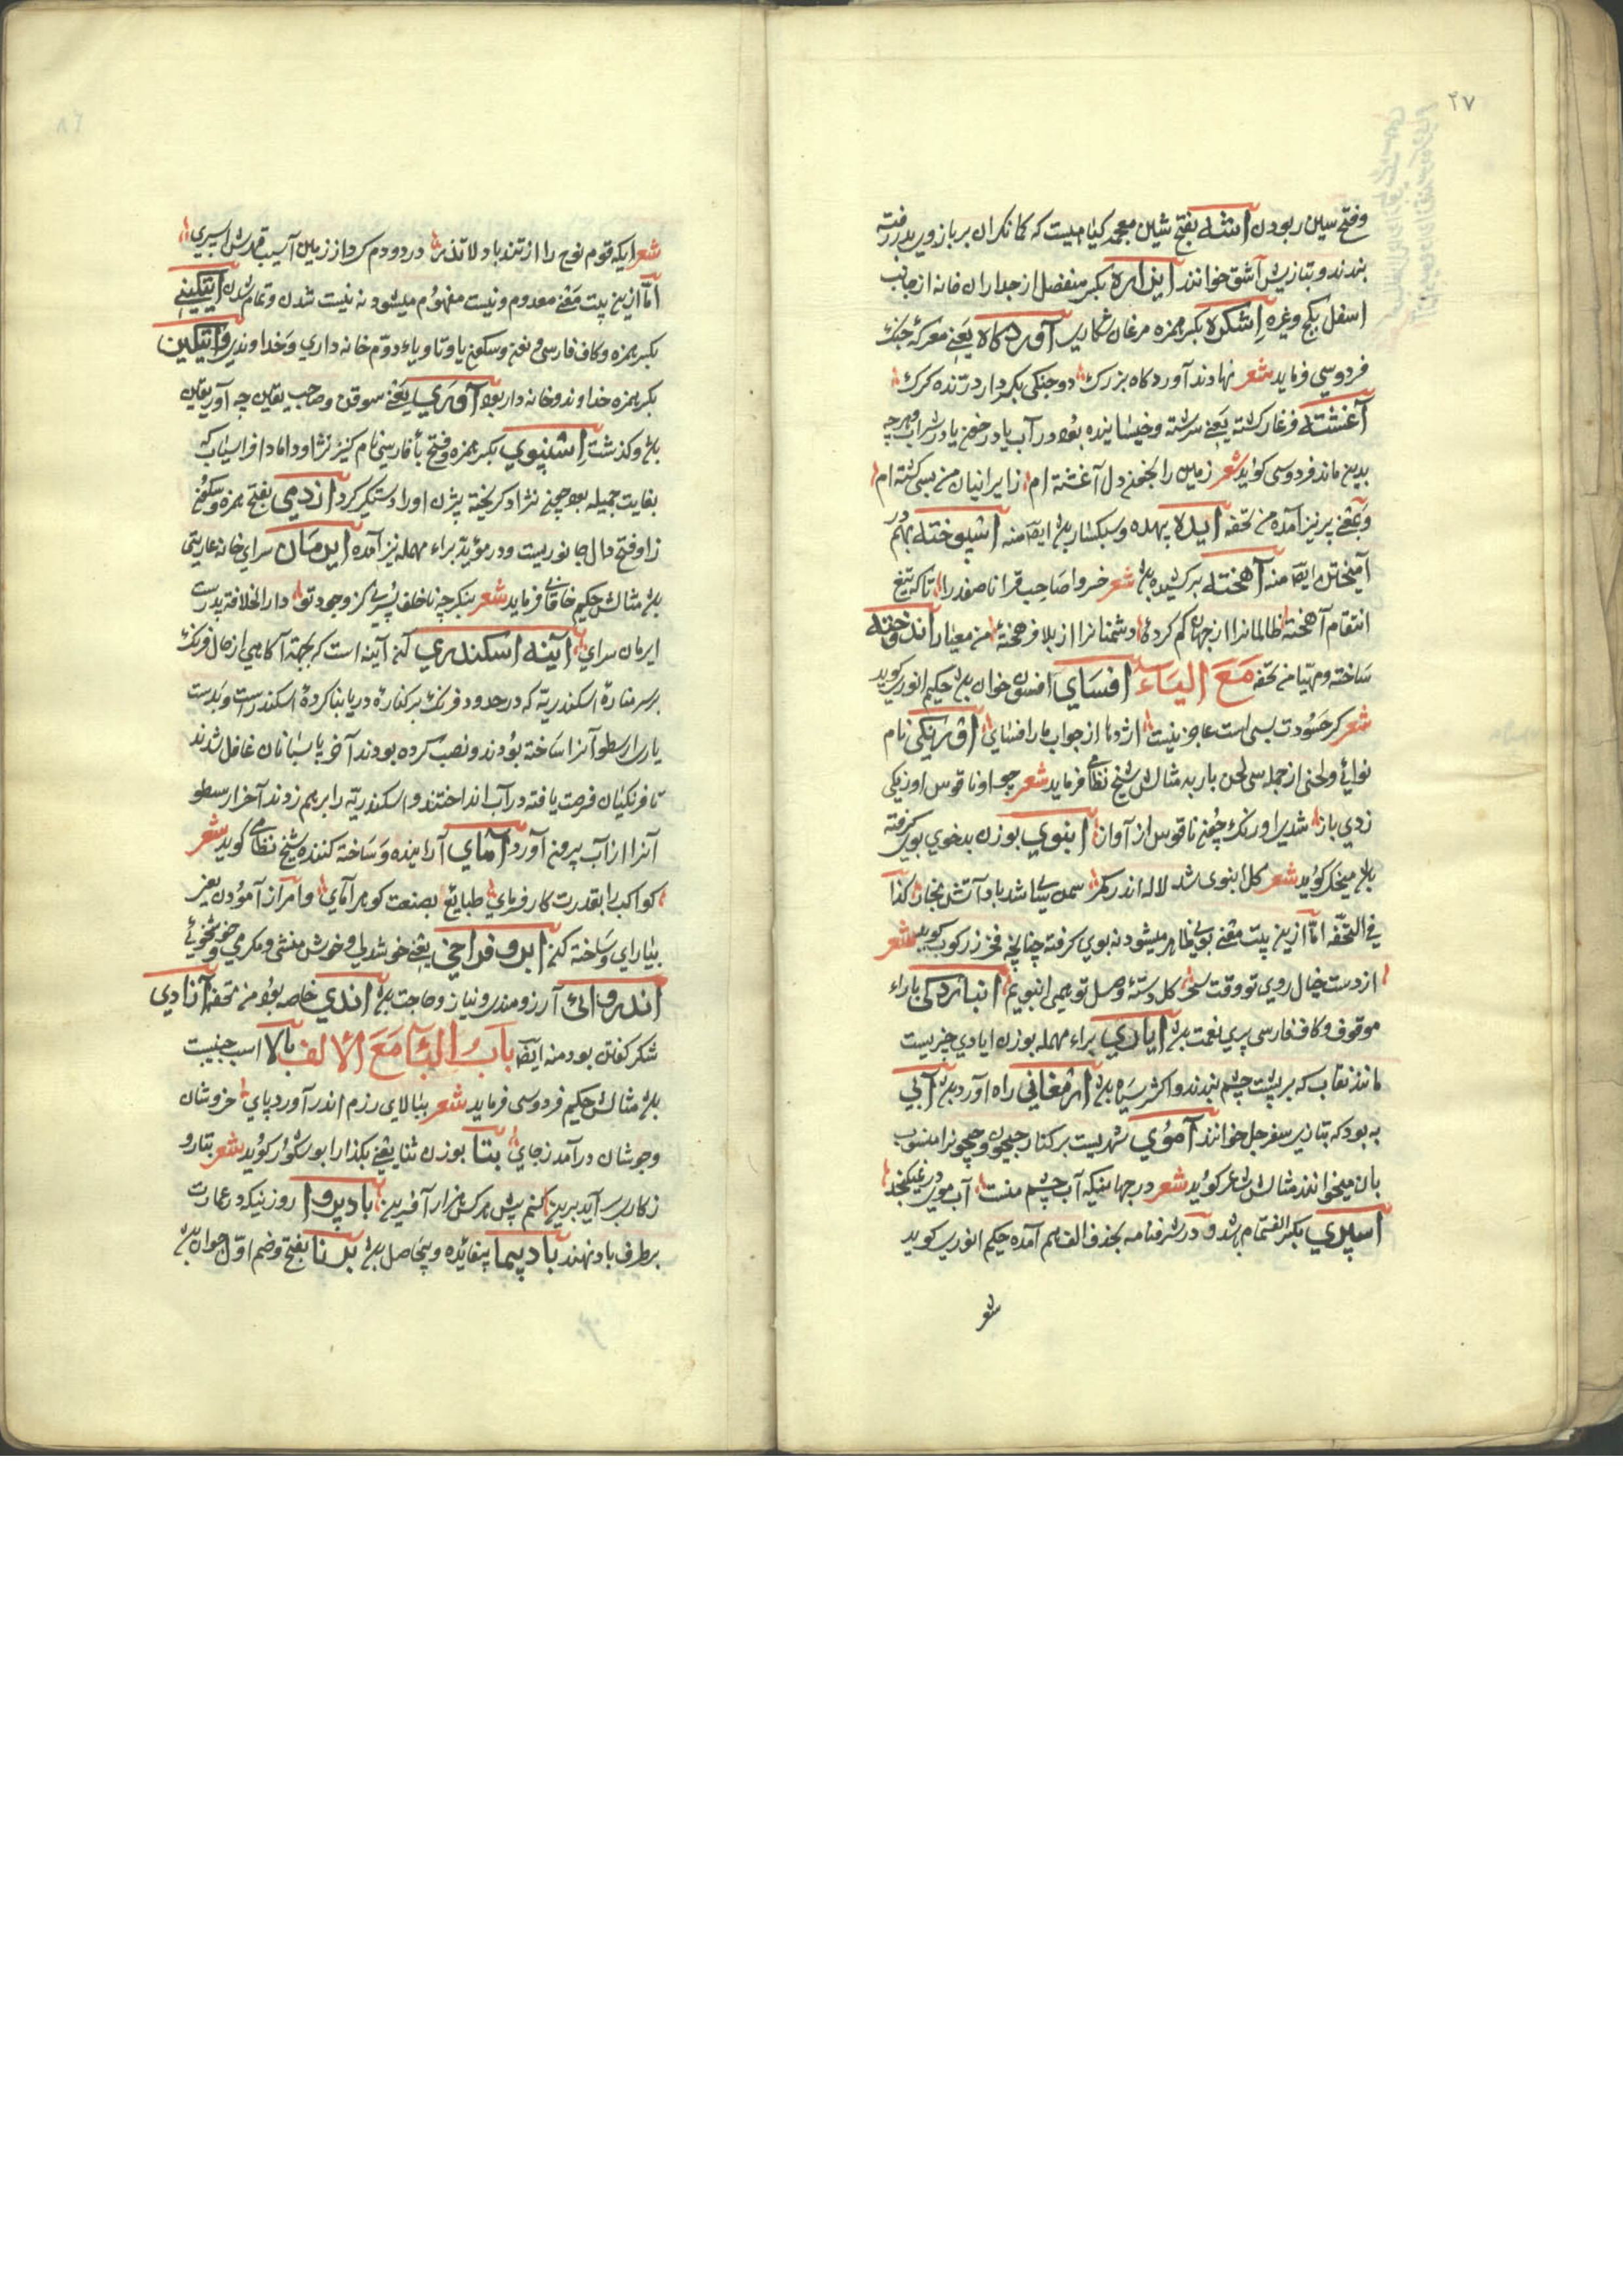 ۲۷
وفتح سین ربودن اشه بفتح شین معجمه کیاهیست که کمانکران بر بازوی بدررفته
بندند و بتازیش آشق خوانند ایزاره بکسر منفصل از جداران خانه از جانب
اسفل بکچ وغیره اشکره بکسر همزه مرغان شکاری آوردکاه یعنی معرکهٔ جنک
فردوسی فرماید شعر نهادند آوردکاه بزرک دو جنکی بکردار درنده کرک
آغشته فرغار کشته یعنی سرشته و خیسانیده بود در آب یا در خون یا در شراب وهرچه
بدین ماند فردوسی کوید شعر زمین را بخون دل آغشته ام از ایرانیان من بسی کشته ام
وبمعنی پر نیز آمده من تحفه ایده بیهده وسبکسار بدل ایضا منه اشیوخته بهم در
آمیختن ایضا منه آهخته برکشیده بدل شعر خسروا صاحب قرانا صفدرا تا که تیغ
انتقام آهختهٔ ظالمانرا از جهان کم کردهٔ دشمنانرا از بلا فرهختهٔ من معیار اندوخته
ساخته ومهیا من تحفه مع الیاء افسای افسون خوان بدل حکیم انوری کوید
شعر کر حسودت بسی است عاجز نیست اژدها از جواب مار افسای اورنکی نام
نوائی ولحنی از جمله سی لحن باربد مثالش شیخ نظامی فرماید شعر چو ناقوس اورنکی
زدی باز شدی اورنک چون ناقوس از آواز انبوی بوزن بدخوی بوی کرفته
بدل منجیک کوید شعر کل انبوی شد لاله اندر کمر سمن بیتا شد باد آتش بخار کذا
فی التحفه اما ازین بیت معنی بویی ظاهر میشود نه بوی کرفته چنانچه فخر زرکوب کوید شعر
از دست خیال روی تو وقت سحر کل دستهٔ وصل تو همی انبویم انباردکی باراء
موقوف وکاف فارسی پری نعمت بدل ایاری براء مهمله بوزن ایادی چیزیست
مانند نقاب که بر پشت چشم بندند و اکثر سیاه بدل ارمغانی راه آورد بدل آبی
به بود که بتازی سفرجل خوانند آموی شهریست بر کنار جیحون وجیحونرا منسوب
بان میخوانند مثالش شاعر کوید شعر در جهانیکه آب چشم منست آب موی در نمیکنجد
اسپری بکسر الف تمام بدل و در شرفنامه بحذف الف هم آمده حکیم انوری کوید
شعر
شعر ایکه قوم نوح را از تندباد لاتذر در دو دم کرد از زمین آسیب قهرش اسپری
اما ازین بیت معنی معدوم ونیست مفهوم میشود نه نیست شدن وتمام شدن ایتکینی
بکسر همزه وکاف فارسی ونون وسکون یا وتا ویاء دوم خانه داری وخداوندی وایتکین
بکسر همزه خداوند وخانه دار بود آوری یعنی موقن وصاحب یقین چه آور یقین
بدل وکذشت اشنپوی بکسر همزه وفتح باء فارسی نام کنیز نژاو داماد افراسیاب که
بغایت جمیله بود چون نژاو کریخته بیژن او را دستکیر کرد ازدمی بفتح همزه وسکون
زا وفتح دال جانوریست ودر مؤید براء مهمله نیز آمده ایرمان سرای خانه عاریتی
بدل مثالش حکیم خاقانی فرماید شعر بنکر چه ناخلف پسری کز وجود تو دارالخلافه پدرست
ایرمان سرای آینه اسکندری آن آینه است که بجهة آکاهی از حال فرنک
بر سر منارهٔ اسکندریه که در حدود فرنک بر کنارهٔ دریا بنا کردهٔ اسکندرست و بدست
یاری ارسطو آنرا ساخته بودند و نصب کرده بودند آخر پاسبانان غافل شدند
تا فرنکیان فرصت یافته در آب انداختند و اسکندریه را برهم زدند آخر ارسطو
آنرا از آب بیرون آورد آمای آراینده و ساخته کننده شیخ نظامی کوید شعر
کواکب را بقدرت کارفرمای طبایع را بصنعت کوهرآمای وامر از آمودن یعنی
بیارای وساخته کن ابروفراخی یعنی خوشدلی وخوش منشی ومکرمی وخوشخوئی
اندروائی آرزومندی ونیاز وحاجت بدل اندی خاصه بود من تحفه آزادی
شکر کفتن بود منه ایضا باب الباء مع الالف بالا اسب جنیبت
بدل مثالش حکیم فردوسی فرماید شعر ببالای رزم اندر آورد پای خروشان
وجوشان درآمد ز جای بتا بوزن ثنا یعنی بکذار ابوشکور کوید شعر بتا رو
زکارب سرآید برین کنم پیش هرکس هزار آفرین بادپروا روزنیکه در عمارت
بر طرف باد نهند بادپیما بیفائده وبیحاصل بدل برنا بفتح وضم اول جوان بدل